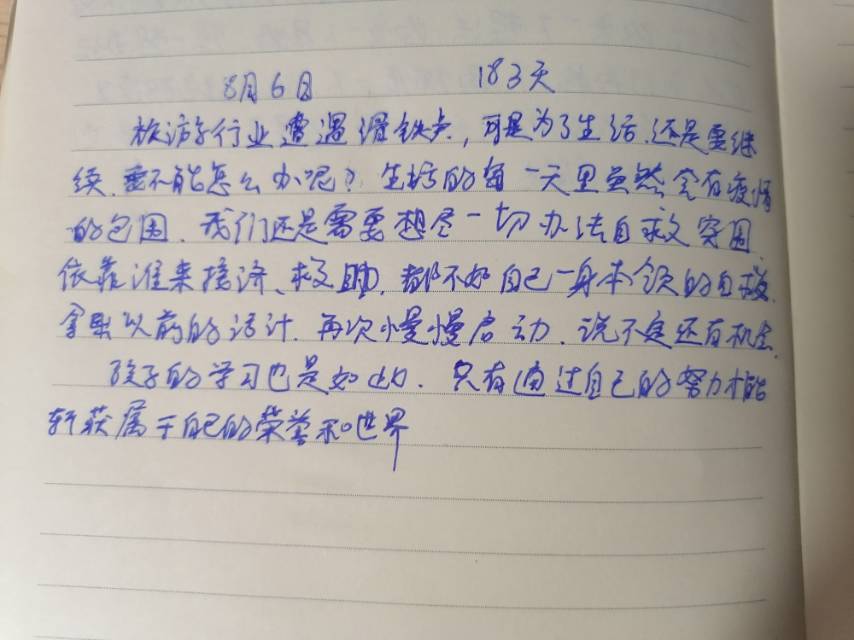 8月6日 183天
旅游行业遭遇滑铁卢，可是为了生活.还是要继
续.要不能怎么办呢？生活的每一天里虽然会有疫情
的包围.我们还是需要想尽一切办法自救突围.
依靠谁来接济、救助.都不如自己一身本领的自救.
拿出以前的活计.再次慢慢启动.说不定还有机会.
孩子的学习也是如此.只有通过自己的努力才能
斩获属于自己的荣誉和世界